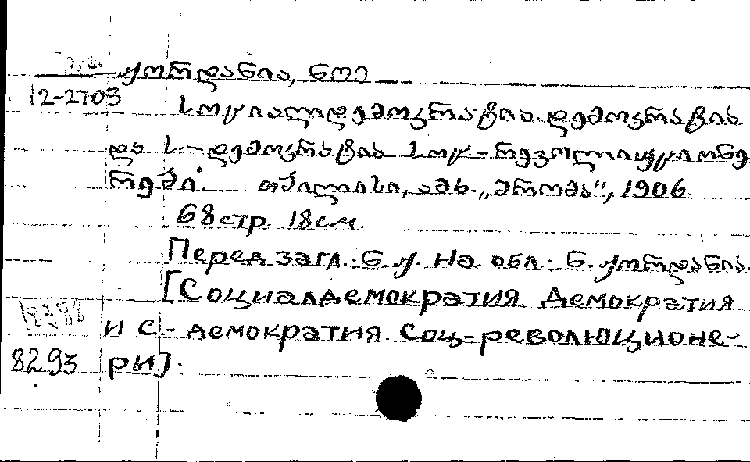 ჟორდანია, ნოე
12-2703
სოციალდემოკრატია დემოკრატია
და ს.-დემოკრატია სოც-რევოლიუციონე
რები. თბილისი, ამხ. „შრომა“, 1906
68 стр 18 см
Перед загл.: Ნ. Ჟ. На обл.: ნ. ჟორდანია.
[Социалдемократия Демократия
и с-демократия Соц-революционе-
8293 ри].